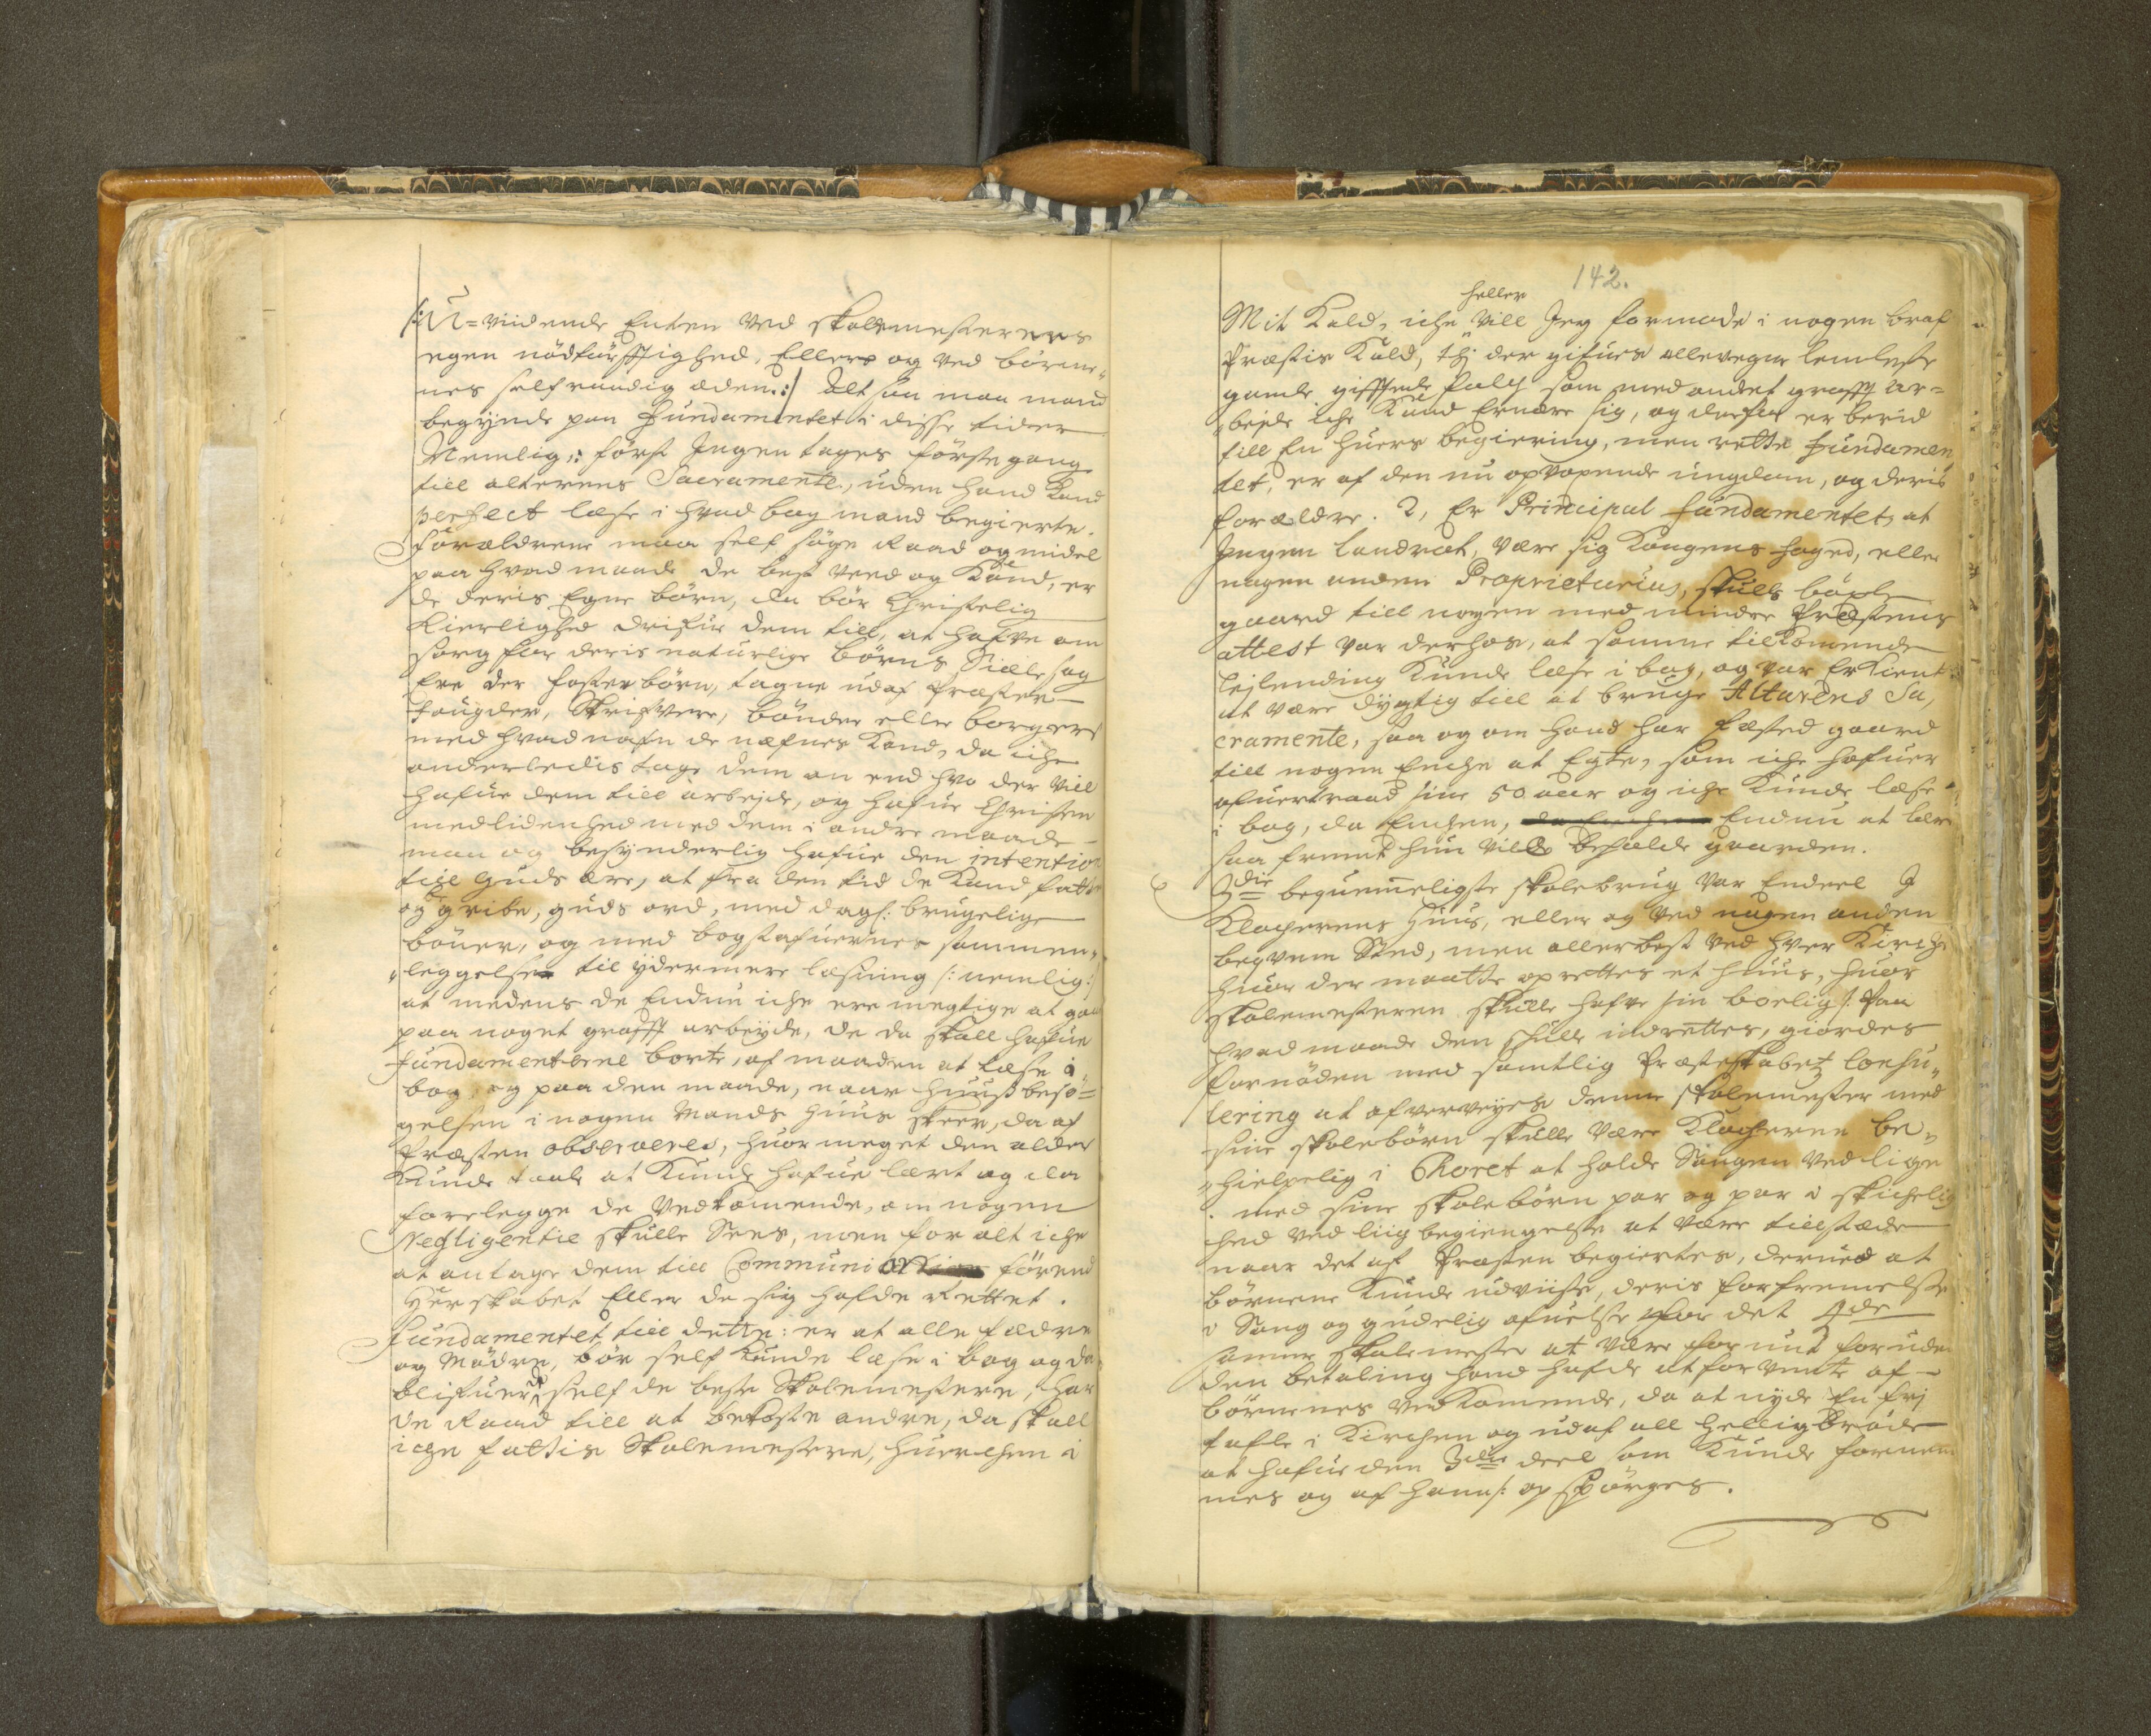 /:U=viidende Enten ved skolemesterens
egen nödtürfftighed, Ellers og ved börne„
nes selfraadig æden:/ Alt saa maa mand
begÿnde paa Fundamentet i disse tider
Nemlig: först Ingen tages förste gang
till alterens Sacramente, uden hand Kand
perfect læse i hvad bog mand begierte.
Forældrene maa self söge Raad og midel
paa hvad maade de best veed og Kand, er
de deris Egne börn, da bör Christelig
Kierlighed drifve dem till, at hafve om
sorg for deris naturlige börns Siæle, og
Ere der fosterbörn, tagne udaf Præster
Fougder, Skrifvere, bönder eller borgere
med hvad nafn de nefnes Kand, da iche
anderledis tage dem an end hvo der vill
hafve dem till arbejde, og hafve Christen
medlidenhed med dem i andre maade
maa og besÿnderlig hafve den intention
till Guds ære, at fra den tid de Kand fatte
og gribe, guds ord, med dagl: brugelige
bönner, og med bogstafvernes sammen„
„leggelse til ÿdermere læsning /: nemlig:/
at medens de Endnu iche ere megtige at gaa
paa noget grofft arbejde, de da skall hafve
Fundamenterne borte, af maaden at læse i
bog, og paa den maade, naar huusbesö=
gelsen i nogen Mands huus skeer, da af
Præsten observeres, huor meget den alder
Kunde taale at Kunde hafve lært og da
forelegge de vedkomende, om nogen
Negligentie skulle Sees, men for alt iche
at antage dem till Communi förend
Herskabet Eller de sig hafde Rettet.
Fundamentet till dette: er at alle fædre
og Mödre, bör self Kunde læse i bog og da
blifver de self de beste Skolemestere, har
de Raad till at bekoste andre, da skall
iche fattis Skolemestere, huerchen i
142.
heller
Mit Kald, iche vill Jeg formode i nogen braf
Præstis Kald, thi der gifves allevegne lemleste
gamle gifftende folch som med andet grofft ar=
„bejde iche Kand Ernære sig, og derfor er berid
till En huers begiering, men rette Fundamen
tet, er af den nu opvoxende ungdom, og deris
forældre. 2, Er Principal Fundamentet, at
Ingen landrot, være sig Kongens foged, eller
nogen anden Proprietarius, skulle böxle
gaard till nogen med mindre Præstens
attest var derhos, at samme tilkomende
lejlending Kunde læse i bog, og var Erkient
at være dÿgtig till at bruge Altarens Sa„
cramente, saa og om hand har fæsted gaard
till nogen Enche at Egte, som iche hafver
ofvertraad sine 50 aar og iche Kunde læse
i bog, da Enchen, Endnu at lære
saa fremt hun ville beholde gaarden.
3die bequemmeligste skolebrug var Endeel I
Klocherens Huus, eller og ved nogen anden
beqvem Sted, men allerbest ved hver Kirche
huor der maatte oprettes et huus, huor
skolemesteren skulle hafve sin boelig: Paa
hvad maade den skulle indrettes, giördes
fornöden med samtlig Præsteskabet Consu„
lering at ofverveÿes denne skolemester med
sine skolebörn skulle være Klocheren be„
„hielpelig i Choret at holde Sangen ved lige
med sine skolebörn par og par i skichelig
hed ved liig begiengelse at være tillstæde
naar det af Præsten begiertes, derved at
börnene Kunde udviise, deris forfremelse
i Sang og gudelig ofvelse for det 4de
samme skolemester at være for uden
den betaling hand hafde at forvente af
börnenes vedkomende, da at nÿde En frj
tafle i Kirchen og udaf all Helligbröde
at hafve den 3die deel som Kunde fornem
mes og af hans: opspörges.